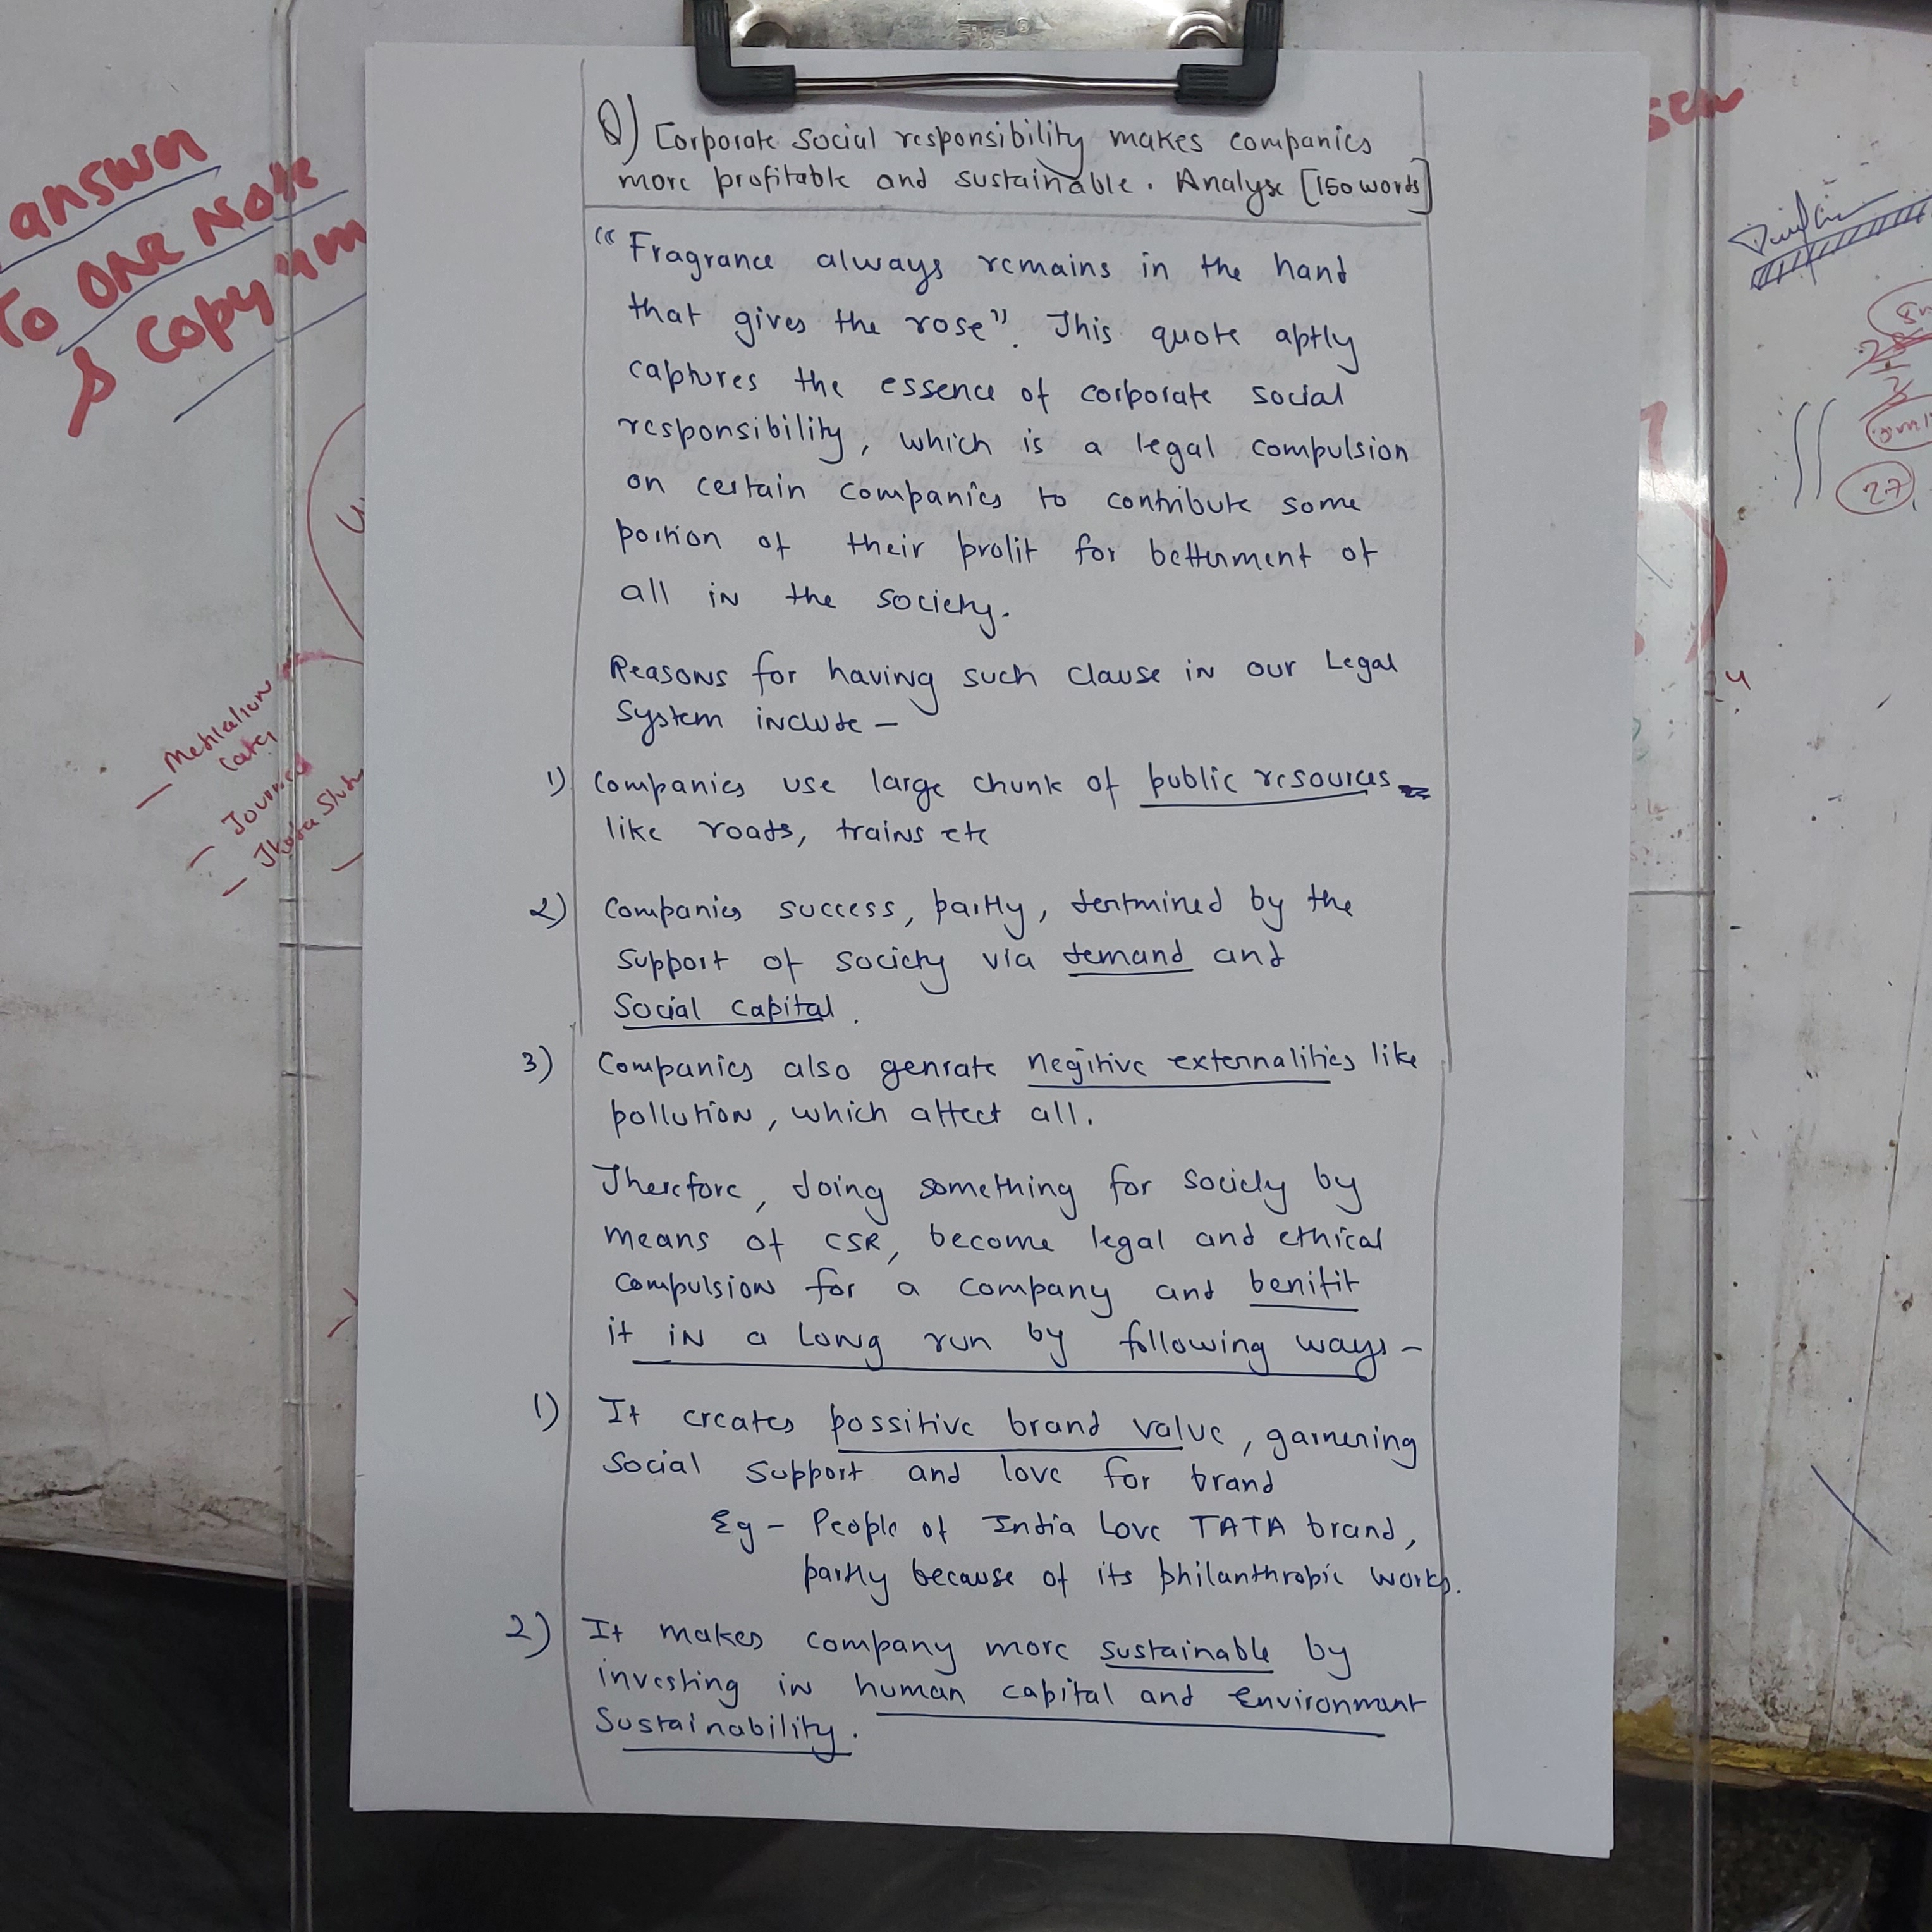 Q) Corporate Social responsibility makes companies
more profitable and sustainable. Analyse [150 words]
"Fragrance always remains in the hand
that gives the rose". This quote aptly
captures the essence of corporate social
responsibility, which is a legal compulsion
on certain companies to contribute some
portion of their profit for betterment of
all in the society.
Reasons for having such clause in our Legal
System include -
1) Companies use large chunk of public resources
like roads, trains etc
2) Companies success, partly, detrmined by the
support of society via demand and
Social Capital.
3) Companies also genrate negitive externalities like
pollution, which affect all.
Therefore, doing something for society by
means of CSR, become legal and ethical
compulsion for a company and benifit
it in a long run by following ways -
1) It creates possitive brand value, garnering
social support and love for brand
Eg - People of India Love TATA brand,
partly because of its philanthropic works.
2) It makes company more sustainable by
investing in human capital and Environment
Sustainability.
answer
To ONE Note
& copy
27